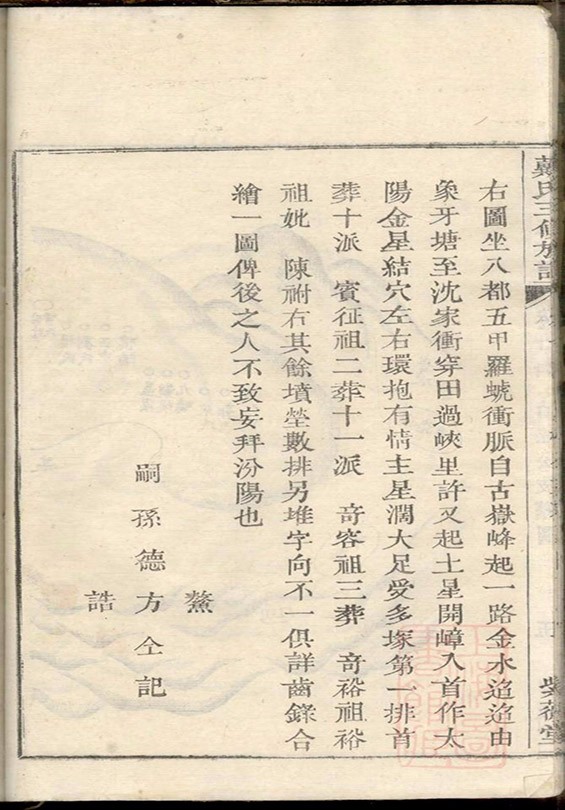 戴氏三修族譜
紫薇堂
右圖坐八都五甲羅蜿衝脈自古嶽峰起一路金水迢迢由
象牙塘至沈家衝穿田過峽里許又起土星開嶂入首作太
陽金星結穴左右環抱有情主星濶大足受多塚第一排首
葬十派 賓征祖二葬十一派 奇容祖三葬 奇裕祖裕
祖妣 陳祔右其餘墳塋數排另堆字向不一俱詳齒錄合
繪一圖俾後之人不致妄拜汾陽也
鰲
嗣孫德方仝記
誥